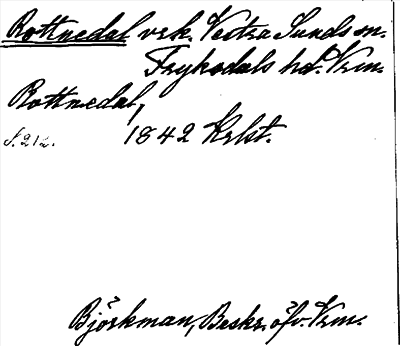 Rottnedal vrk. Vestra Sunds sn.
Fryksdals hd. Vrm.
Rottnedal,
s. 212. 1842 Krlst.
Björkman, Beskr. öfv. Vrm.